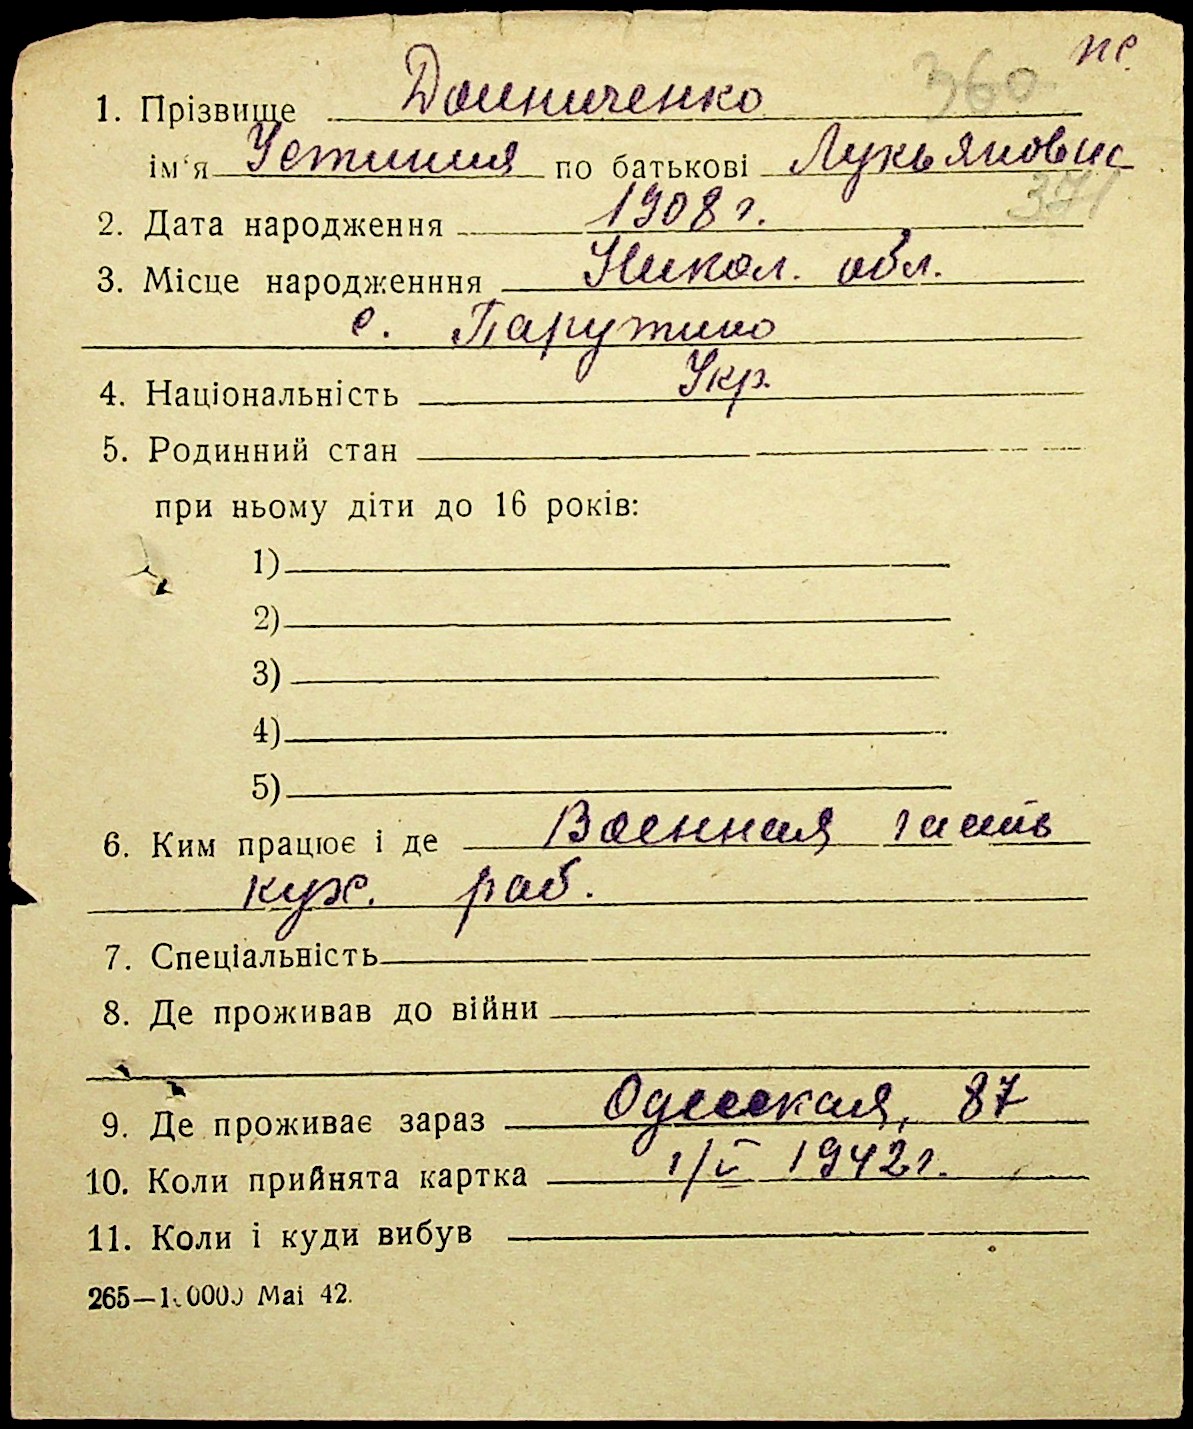 пс.
360
1. Прізвище Домниченко
ім‘я Устиния по батькові Лукьяновна
371
2. Дата народження 1908 г.
3. Місце народженння Никол. обл.
с. Парутино
4. Національність Укр.
5. Родинний стан
при ньому діти до 16 років:
1)
2)
3)
4)
5)
6. Ким працює і де Военная часть
кух. раб.
7. Спеціальність
8. Де проживав до війни
9. Де проживає зараз Одесская, 87
10. Коли прийнята картка 1942 г.
11. Коли і куди вибув
265—1.0000 Маі 42.